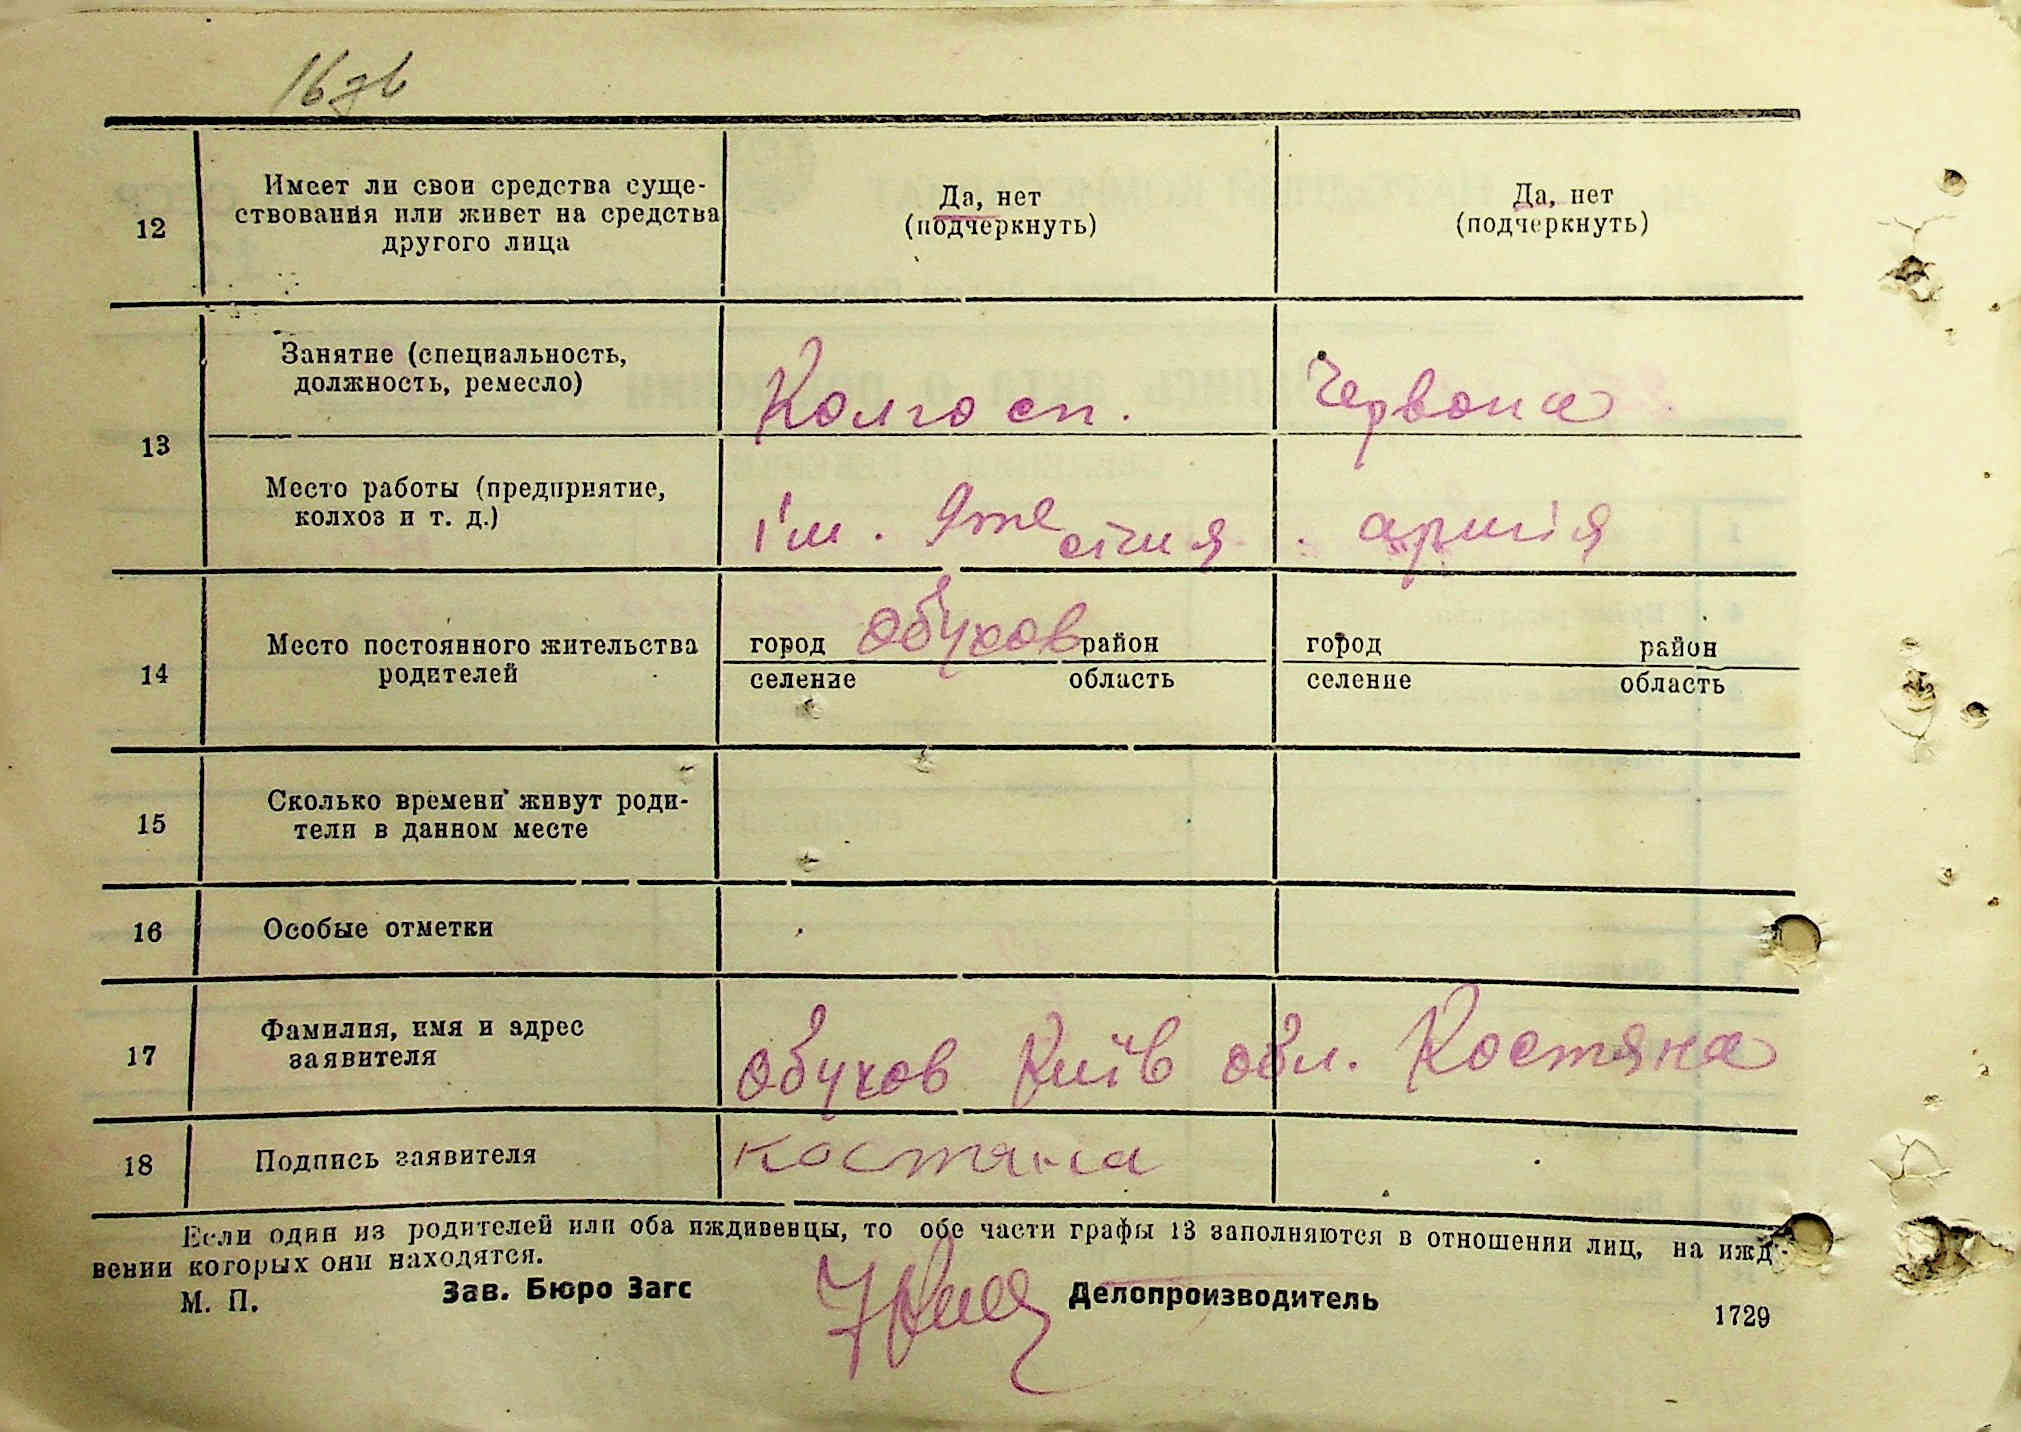 16 зв
12
Имеет ли свои средства суще-
ствования или живет на средства
другого лица
Да, нет
(подчеркнуть)
Да, нет
(подчеркнуть)
13
Занятие (специальность,
должность, ремесло)
Колгосп.
Червона
Место работы (предприятие,
колхоз и т. д.)
ім.
армія
14
Место постоянного жительства
родителей
город Обухов район
селение область
город район
селение область
15
Сколько времени живут роди-
тели в данном месте
16
Особые отметки
17
Фамилия, имя и адрес
заявителя
Обухов Київ обл. Костяна
18
Подпись заявителя
Костяна
Если один из родителей или оба иждивенцы, то обе части графы 13 заполняются в отношении лиц, на ижд-
вении которых они находятся.
М. П.
Зав. Бюро Загс
Делопроизводитель
1729